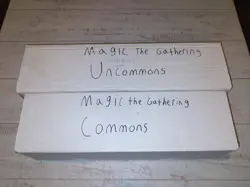 Magic The Gathering
Uncommons
Magic the Gathering
Commons